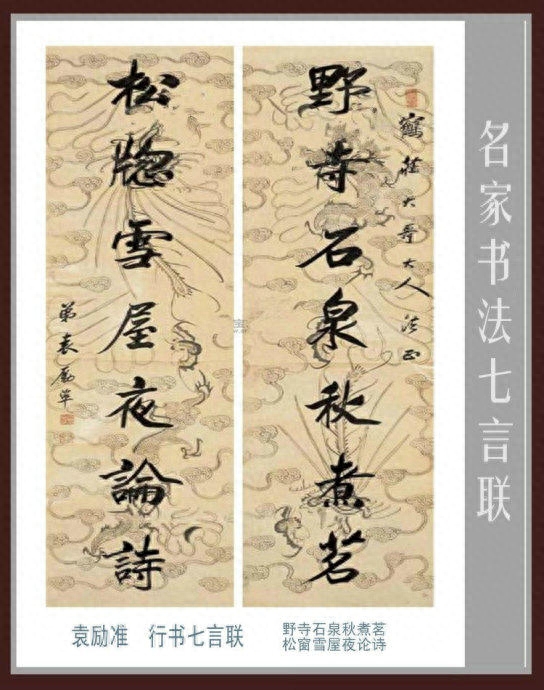 名家书法七言联
野寺石泉秋煮茗
大哥大人法正
松牕雪屋夜論詩
弟袁励准
袁励准 行书七言联
野寺石泉秋煮茗
松窗雪屋夜论诗